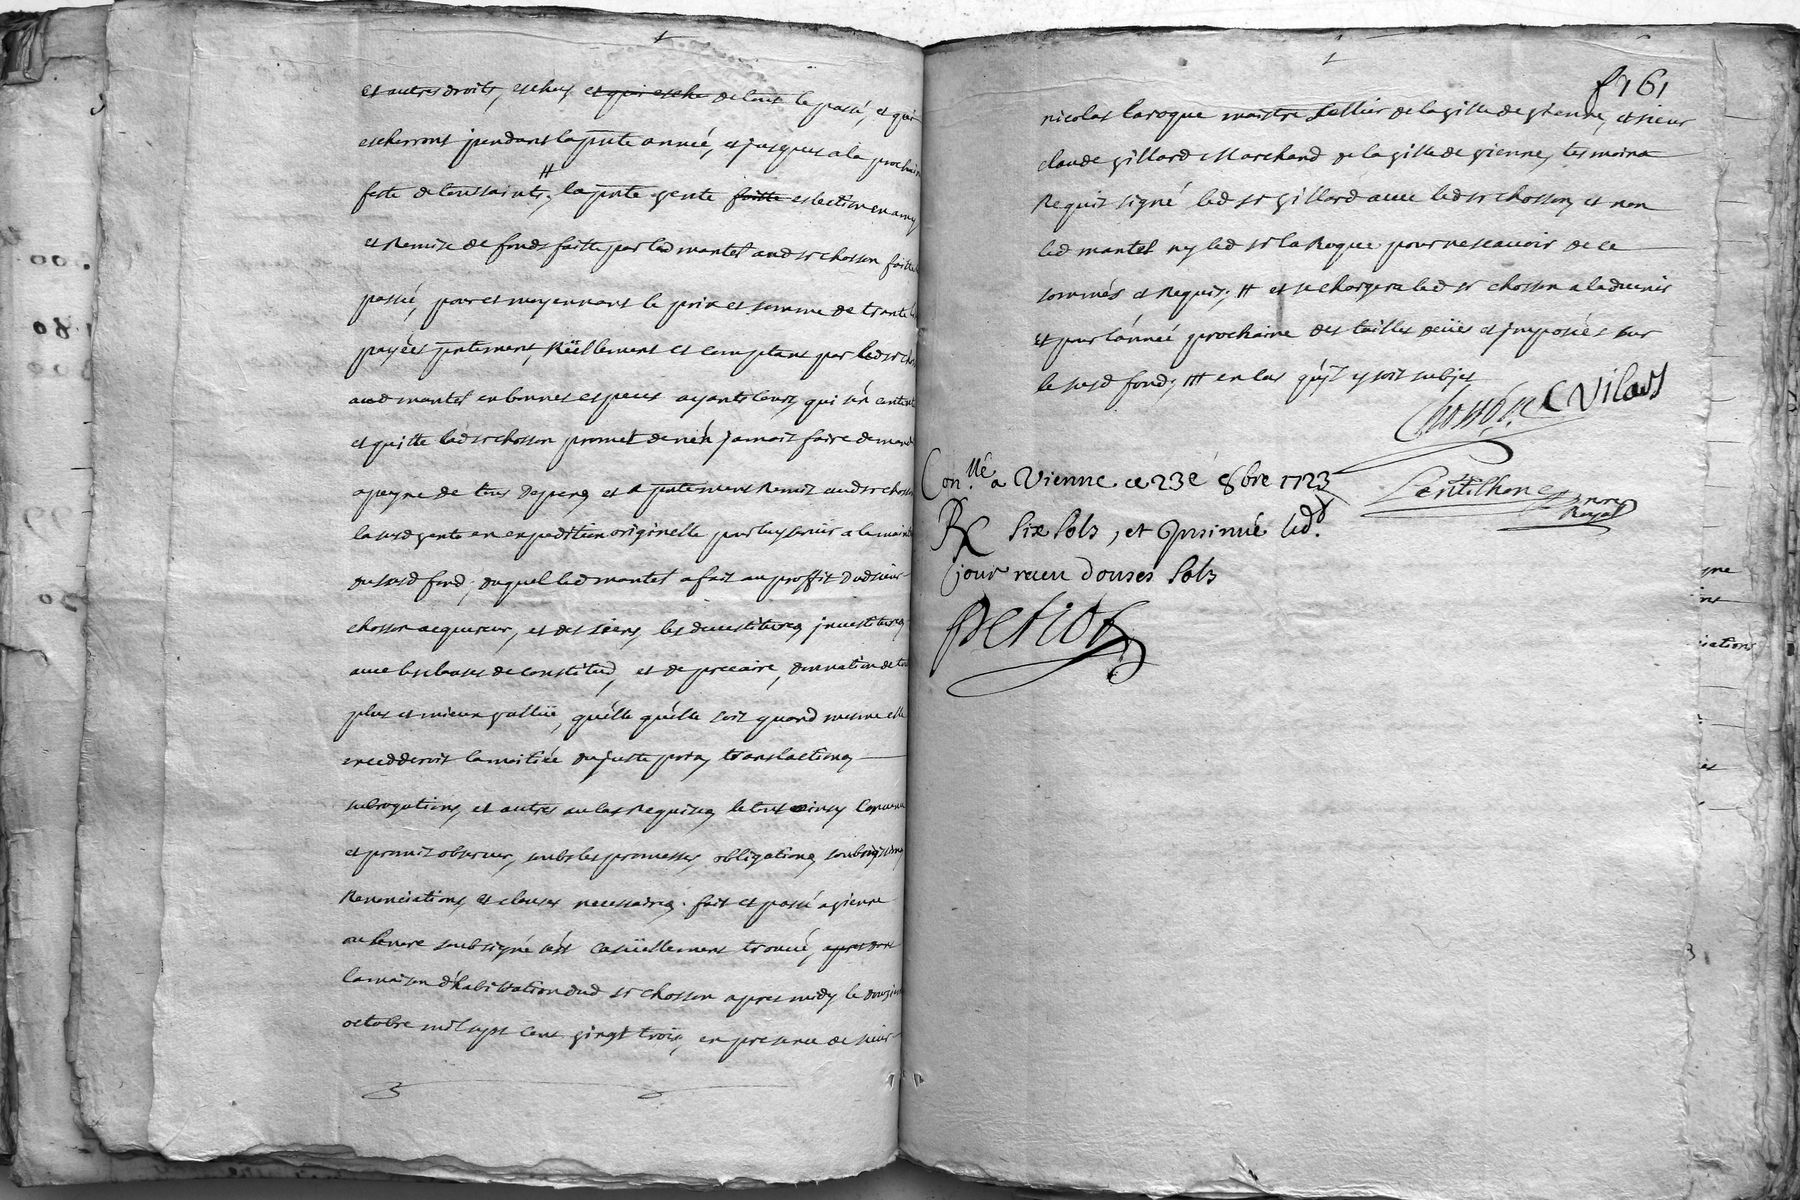 et autres droits, escheus et qui esche de tout le passé, et qui
escherront pendant la pnte année, et jusques a la prochaine
feste de toussaints, # la pnte vente faitte eslection en amy
et Remise de fonds faitte par led mantel aud sr chosson faitte
passé, pour et moyennant le prix et somme de trante
payées pntement, Réellement et comptant par led sr chosson
aud mantel en bonnes especes ayants cours, qui s'en contente
et quitte led sr chosson promet de n'en jamais faire demande
a peyne de tous despens, et a pntement Remis aud sr chosson
la susd vente en expedition originelle pour luy servir a la
du susd fond, duquel led mantel a fait au proffit dud sieur
chosson acquereur, et des siens, les devestitures, jnvestitures
avec les clauses de constitud, et de precaire, donnation de
plus et mieux vallüe, quelle quelle soit quand mesme elle
excedderoit la moitiée du juste prix, translations
subrogations, et autres au cas Requises, le tout ainsy convenu
et promis observer, soubs les promesses, obligations, soubmissions
Renonciations, et clauses necessaires. fait et passé a vienne
ou le nore soubsigné s'est casüellement trouvé, apres dans
la maison d'habittation dud sr chosson apres midy le douzieme
octobre mil sept cent vingt trois, en presence de sieur
f 161
nicolas laroque maistre sellier de la ville de vienne, et sieur
claude gillard Marchand de la ville de vienne, tesmoins
Requis signé led sr gillard avec led sr chosson, et non
led mantel ny led sr la Roque pour ne scavoir de ce
sommés et Requis; # et se chargera led sr chosson a ladvenir
et pour l'année prochaine des tailles deües et jmposées sur
le susd fond, ## en cas qu'jl y soit subjet
Chosson C Vilard
Gentilhomme nore Royal
Con.llé a Vienne ce 23e 8bre 1723
R six sols, et Jnsinué led.
jour receu douses sols
Periol